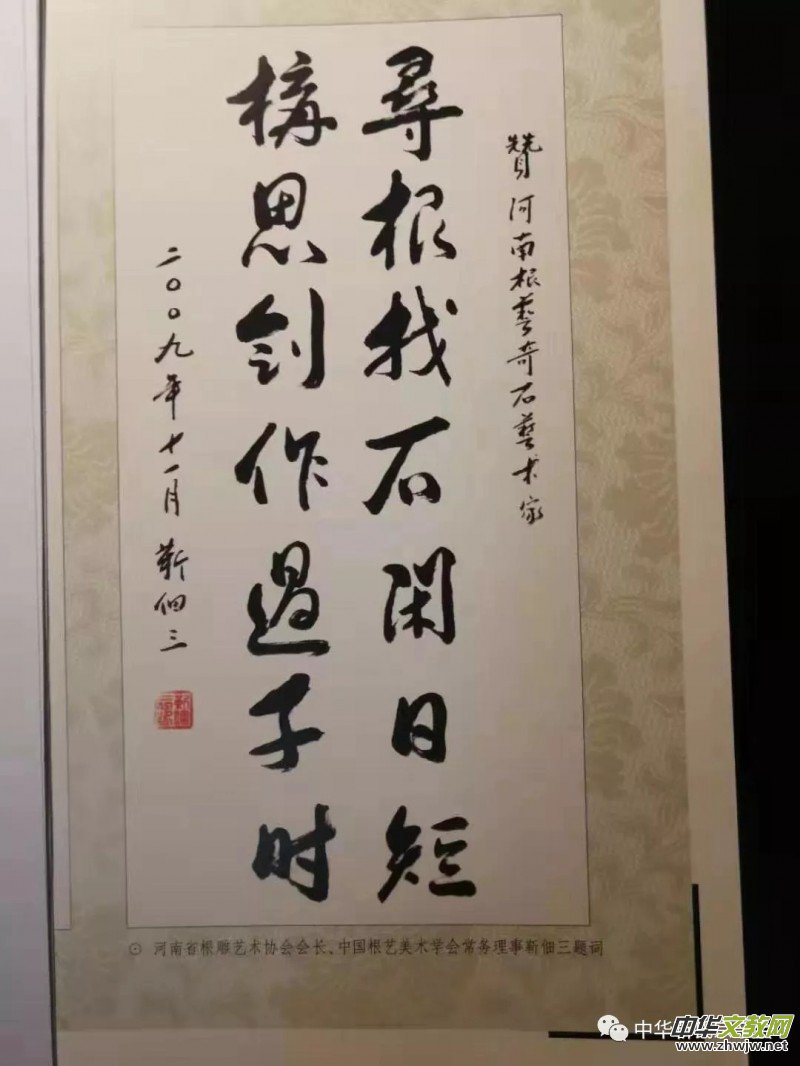 贊河南根藝奇石藝术家
尋根找石闲日短
構思创作過子时
二〇〇九年十一月 靳佃三
⊙ 河南省根雕艺术协会会长、中国根艺美术学会常务理事靳佃三题词
中华文教网
www.zhwjw.net